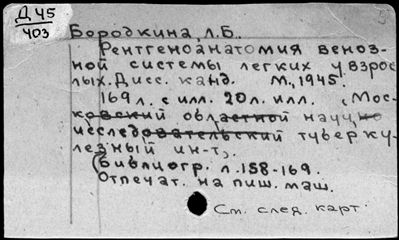 Д 45
403
Бородкина, Л.Б.
Рентгеноанатомия веноз-
ной системы легких у взрос-
лых. Дисс. канд. М., 1945.
169 л. с илл. 20 л. илл. (Мос-
ковский областной научно
исследовательский туберку-
лезный ин-т).
(Библиогр. л. 158-169.
Отпечат. на пиш. маш.
См. след. карт.